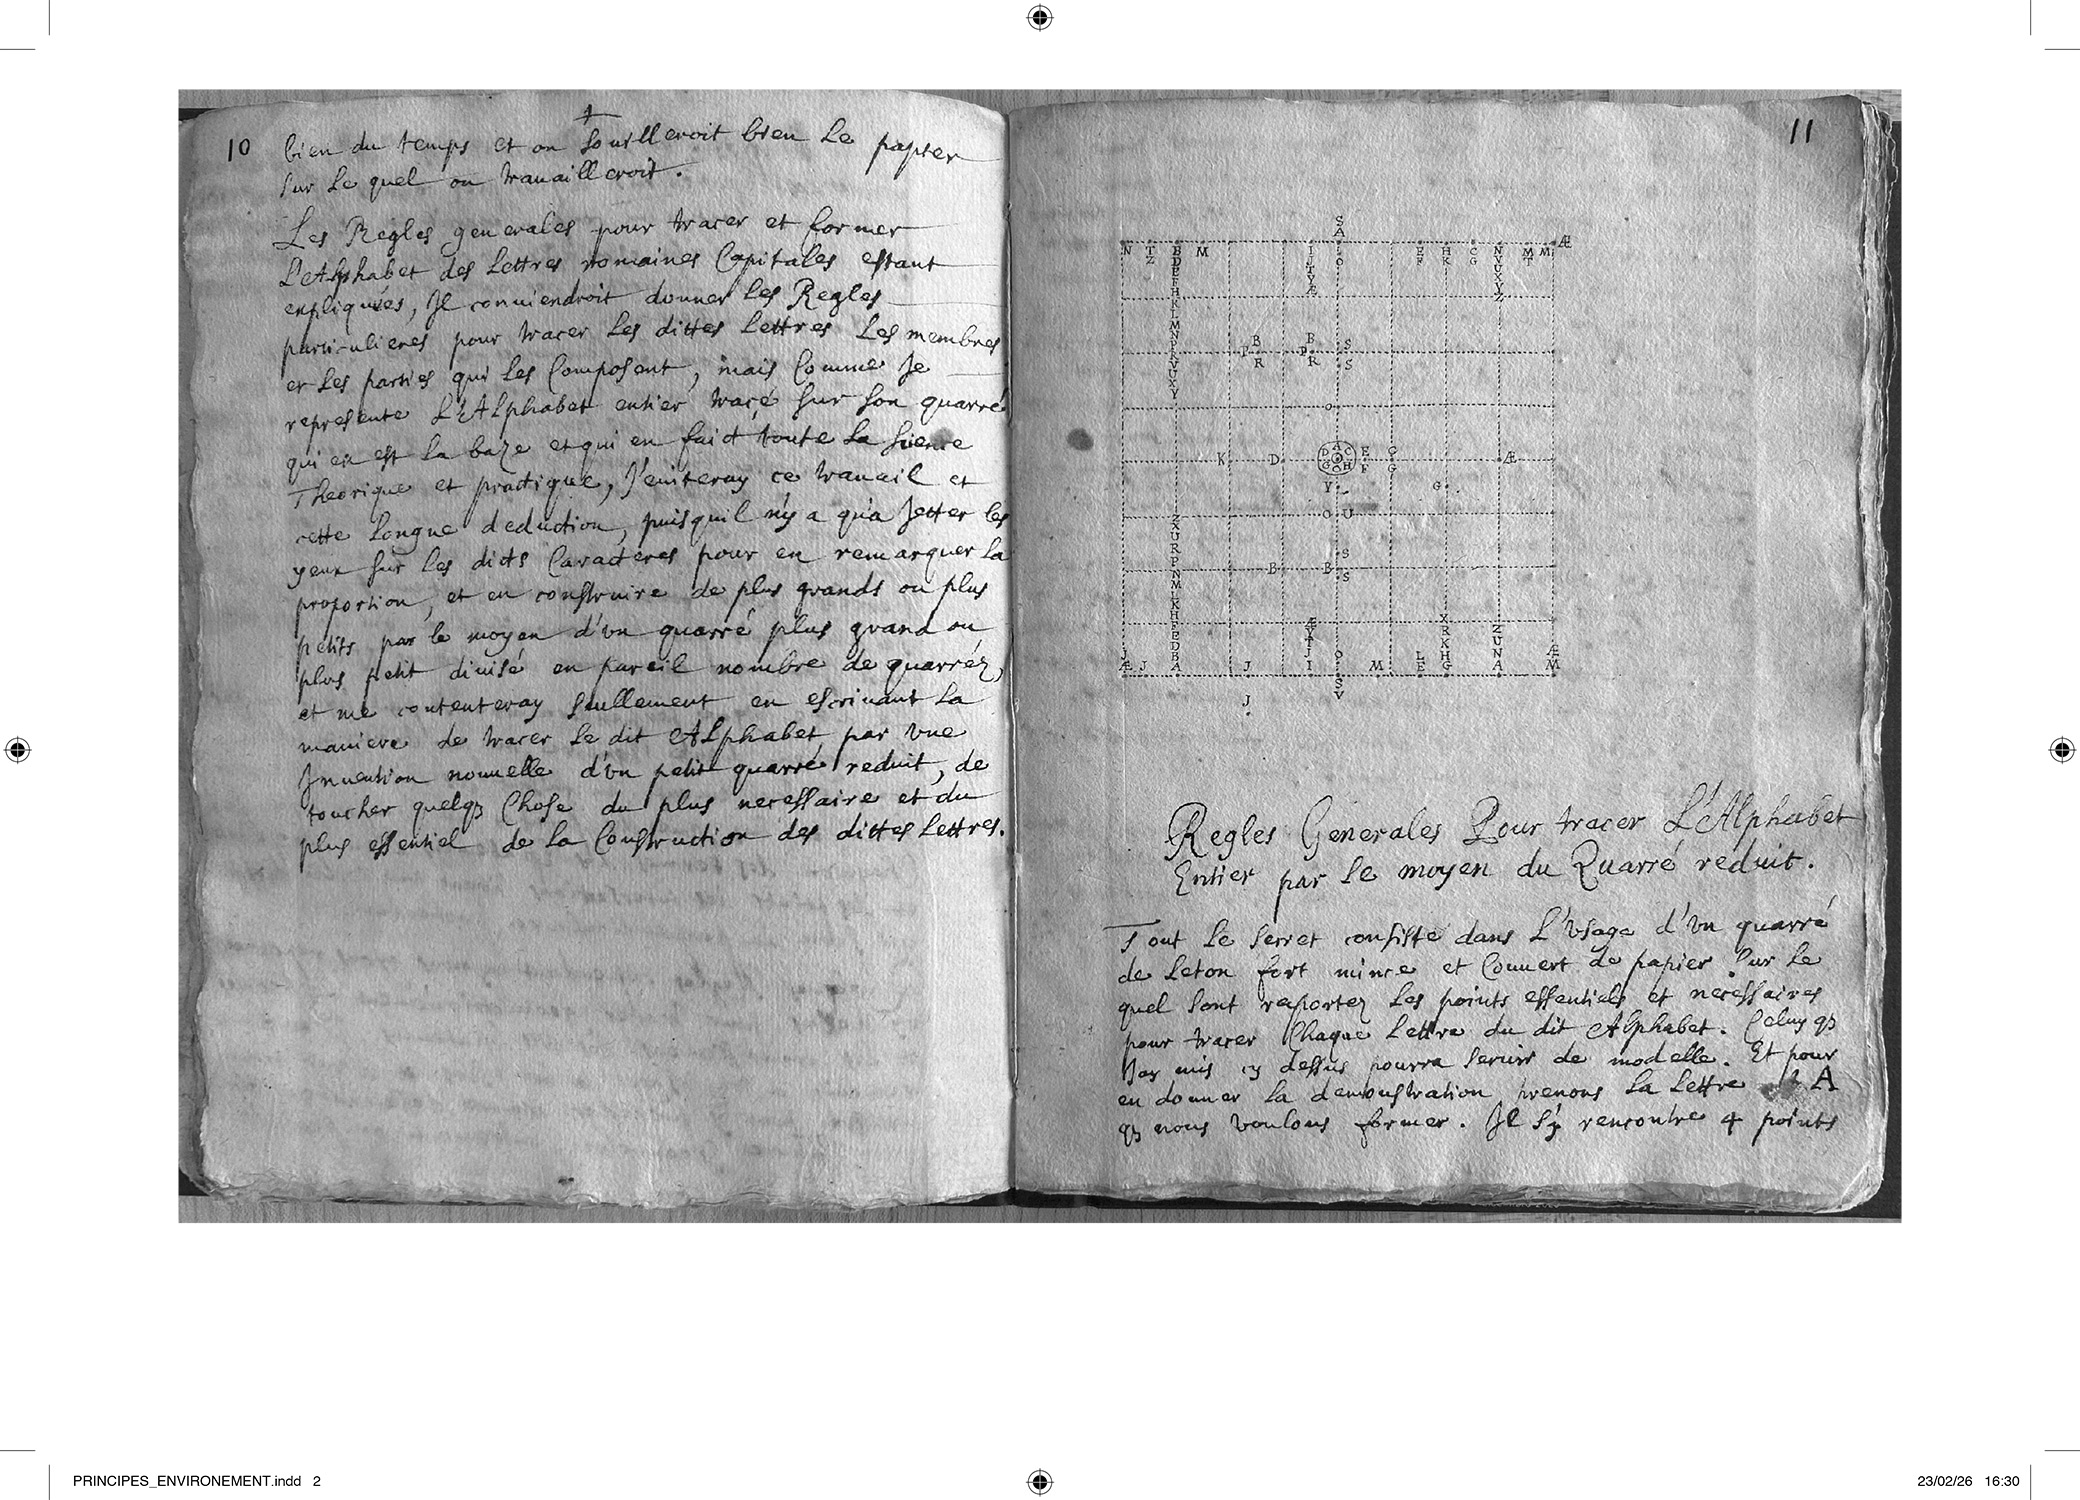 10
bien du temps et on souilleroit bien Le papier
sur Le quel on travailleroit.
Les Regles generales pour tracer et former
L'Alphabet des Lettres romaines Capitales estant
expliquées, Jl conviendroit donner Les Regles
particulieres pour tracer Les dittes Lettres Les membres
et Les parties qui Les Composent, mais Comme Je
represente L'Alphabet entier tracé sur son quarré
qui en est la baze et qui en faict toute La
Theorique et practique, J'eviteray ce travail et
cette Longue deduction, puisquil n'y a qu'a Jetter les
yeux sur Les dicts Caracteres pour en remarquer La
proportion, et en construire de plus grands ou plus
petits par le moyen d'vn quarré plus grand ou
plus petit divisé en pareil nombre de quarréz,
et me contenteray seullement en escrivant La
maniere de tracer Le dit ALphabet par vne
Jnvention nouvelle d'vn petit quarré reduit, de
toucher quelqȝ Chose du plus necessaire et du
plus essentiel de La Construction des dittes Lettres.
11
S
A
N T B M I L E H C N M M Æ
Z D J O F K G V T
E T U
F V X
H Æ Y
K Z
L
M
N
P
R
V
U
X
Y
B B S
P P
R R S
O
K D A E C Æ
D C
G O H F G
Y G
O U
Z
X
U
R S
P B B
N S
M
L
K
H Æ X
F Y R Z
E T K U
D J O L H N Æ
J B
Æ J A J I M E G A M
S
V
J
Regles Generales Pour tracer L'Alphabet
Entier par Le moyen du Quarré reduit.
Tout Le secret consiste dans L'Vsage d'vn quarré
de Leton fort mince et Couvert de papier sur Le
quel sont raportez Les points essentiels et necessaires
pour tracer Chaque Lettre du dit Alphabet. Celuy qȝ
Jay mis cy dessus pourra servir de modelle. Et pour
en donner La demonstration prenons La Lettre A
qȝ nous voulons former. Jl s'y rencontre 4 points
PRINCIPES_ENVIRONEMENT.indd 2
23/02/26 16:30